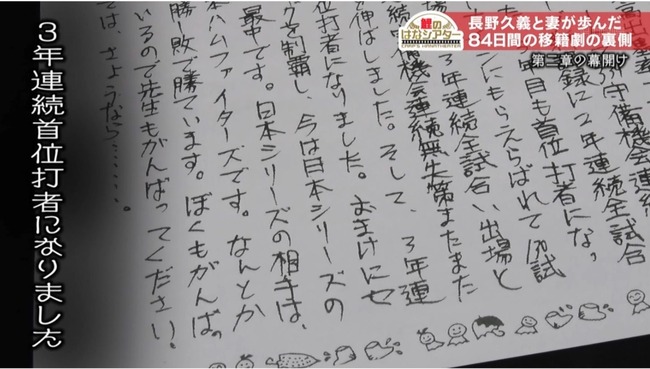 鯉の
はなシアター
CARP'S HANATHEATER
長野久義と妻が歩んだ
84日間の移籍劇の裏側
第二章の幕開け
守備機会連続
録に2年連続全試合
年目も首位打者にな。
ンにもえらばれて130試
3年連続全試合い出場と
備機会連続無失策またまた
で伸ばしました。そして、3年連
位打者になりました。おまけにセ
グを制覇し、今は日本シリーズの
最中です。日本シリーズの相手は、
本ハムファイターズです。なんとか
勝一敗で勝ています。ぼくもがんば。
いるので先生もがんばってください。
では、さょうなら……。
3年連続首位打者になりました